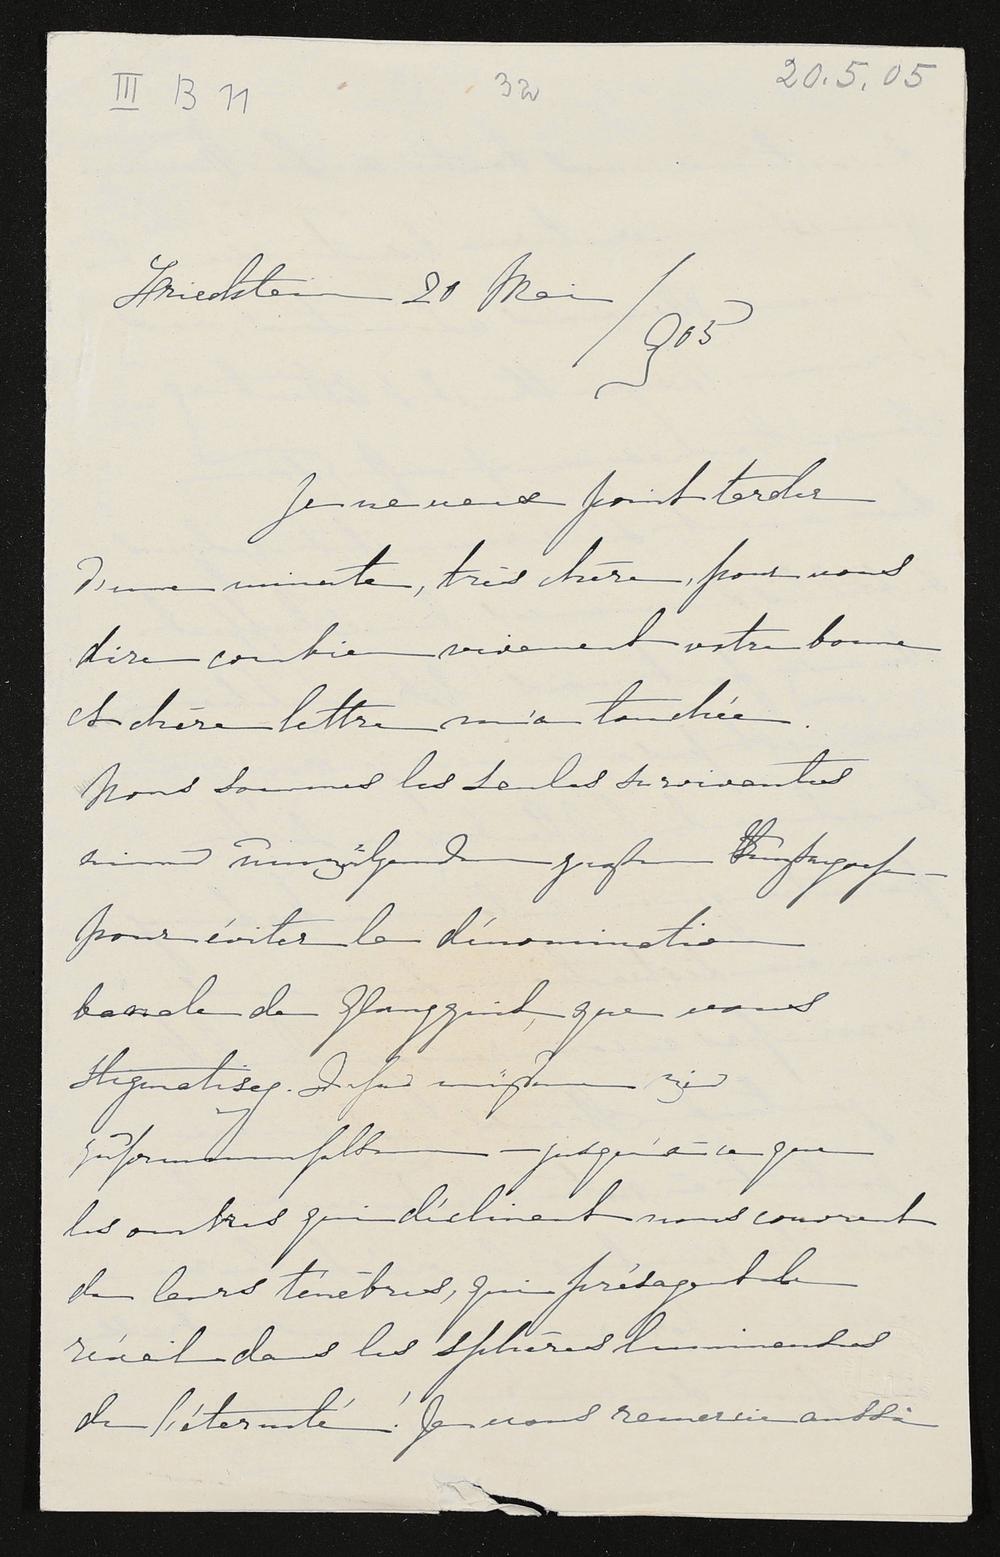 III B 11
32
20.5.05
Friedstein 20 Mai
/905
Je ne veux point tarder
d'une minute, très chère, pour vous
dire combien vivement votre bonne
et chère lettre m'a touchée.
Nous sommes les seules survivantes
einer großen
pour éviter la dénomination
banale de Glanzzeit, que vous
stigmatisez. müssen wir
zusammenhalten – jusqu'à ce que
les ombres qui déclinent nous couvrent
de leurs ténèbres, qui présagent le
réveil dans les sphères lumineuses
de l'éternité! Je vous remercie aussi